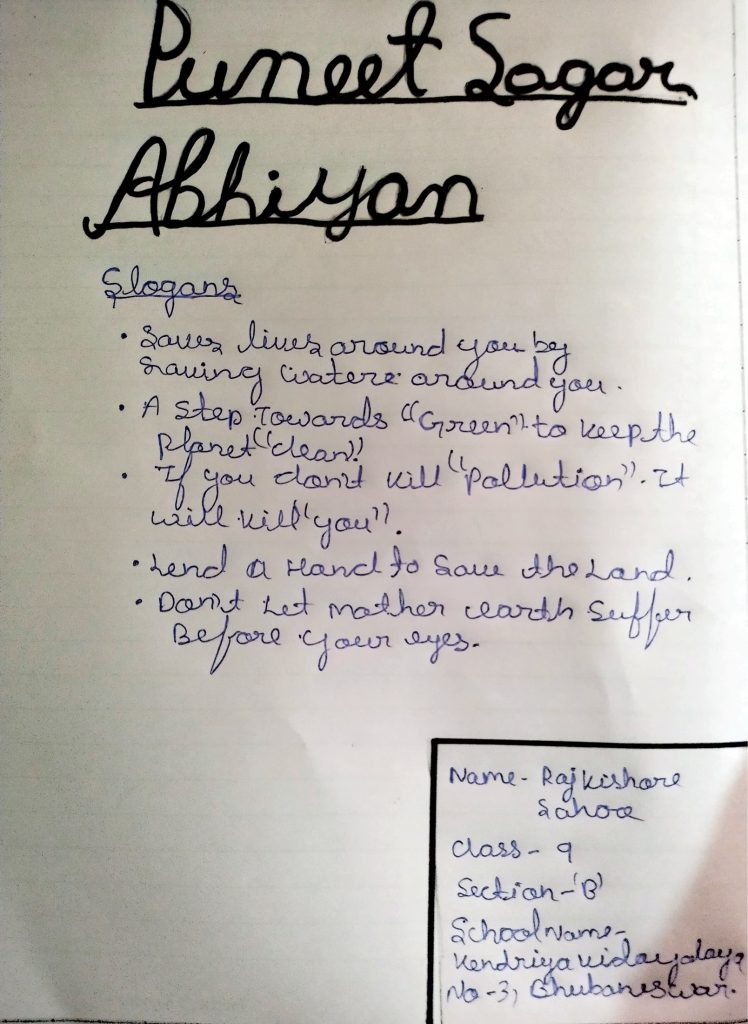 Puneet Sagar
Abhiyan
Slogans
• Saves lives around you by
saving waters around you.
• A Step Towards "Green" to keep the
planet "clean".
• If you don't kill "pollution". It
will kill "you".
• Lend a Hand to Save the Land.
• Don't Let mother earth Suffer
Before your eyes.
Name - Rajkishore
Sahoo
Class - 9
Section - 'B'
School Name -
Kendriya Vidayalaya
No - 3, Bhubaneswar.